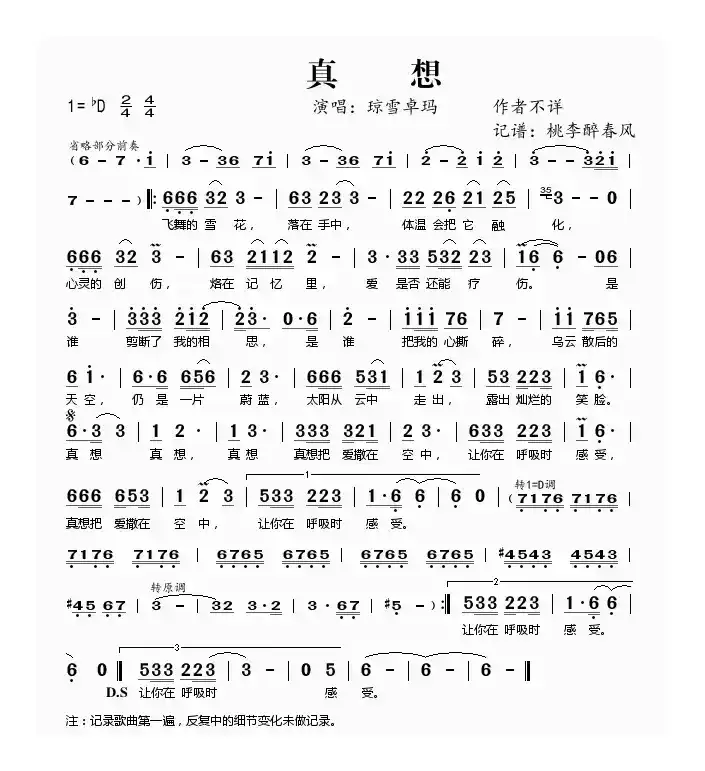 真 想
1=♭D 2/4 4/4 演唱：琼雪卓玛 作者不详
记谱：桃李醉春风
省略部分前奏
(6 - 7 · i | 3 - 36 7i | 3 - 36 7i | 2 - 2 i 2 | 3 - - 32i |
7 - - - ) ‖: 666 32 3 - | 63 23 3 - | 22 26 21 25 | 35 3 - - 0
飞舞的 雪 花， 落在 手中， 体温 会把 它 融 化，
666 32 3 - | 63 2112 2 - | 3 · 33 532 23 | 16 6 - 06 |
心灵的 创 伤， 烙在 记 忆 里， 爱 是否 还能 疗 伤。 是
3 - | 333 212 | 23 · 0 · 6 | 2 - | iii 76 | 7 - | ii 765
谁 剪断了 我的相 思， 是 谁 把我的 心撕 碎， 乌云 散后的
6 i · | 6 · 6 656 | 2 3 · | 666 531 | 1 2 3 | 53 223 | 1 6 · |
天 空， 仍 是 一片 蔚 蓝， 太阳从 云中 走 出， 露出 灿烂的 笑 脸。
6 · 3 3 | 1 2 · | 1 3 · | 333 321 | 2 3 · | 633 223 | 1 6 · |
真 想 真 想， 真 想 真想把 爱撒在 空 中， 让你在 呼吸时 感 受，
666 653 | 1 2 3 | 1 533 223 | 1 · 6 6 | 6 0 | 转1=D调 (7176 7176 |
真想把 爱撒在 空 中， 让你在 呼吸时 感 受。
7176 7176 | 6765 6765 | 6765 6765 | #4543 4543 |
转原调
#45 67 | 3 - | 32 3·2 | 3 · 67 | #5 - ) :‖ 2 533 223 | 1 · 6 6 |
让你在 呼吸时 感 受。
6 0 ‖ 3 533 223 | 3 - | 0 5 | 6 - | 6 - | 6 - ‖
D.S 让你在 呼吸时 感 受。
注：记录歌曲第一遍，反复中的细节变化未做记录。